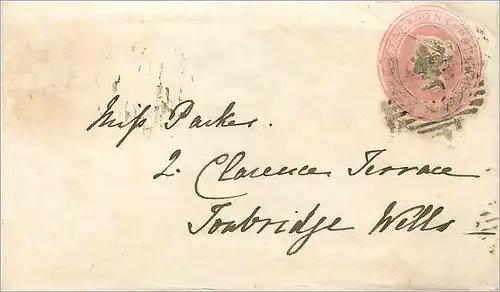 Miss Parker.
2. Clarence Terrace
Tonbridge Wells